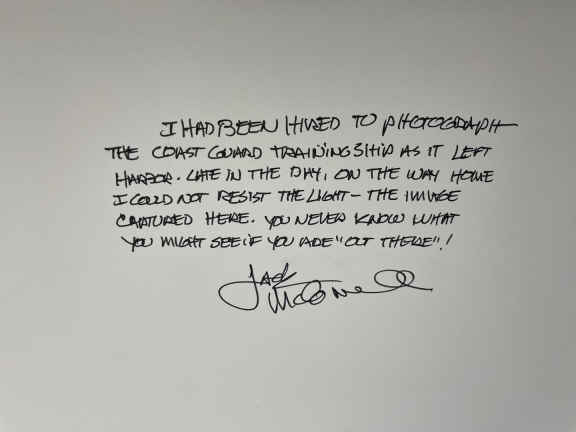 I HAD BEEN HIRED TO PHOTOGRAPH
THE COAST GUARD TRAINING SHIP AS IT LEFT
HARBOR. LATE IN THE DAY, ON THE WAY HOME
I COULD NOT RESIST THE LIGHT – THE IMAGE
CAPTURED HERE. YOU NEVER KNOW WHAT
YOU MIGHT SEE IF YOU ARE "OUT THERE"!
Jack McConnell